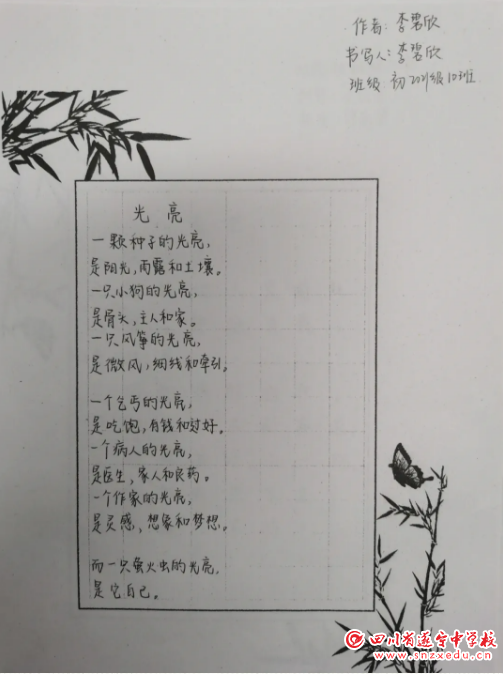 作者：李碧欣
书写人：李碧欣
班级 初2021级10班
光亮
一颗种子的光亮，
是阳光，雨露和土壤。
一只小狗的光亮，
是骨头，主人和家。
一只风筝的光亮，
是微风，细线和牵引。
一个乞丐的光亮，
是吃饱，有钱和过好。
一个病人的光亮，
是医生，家人和良药。
一个作家的光亮，
是灵感，想象和梦想。
而一只萤火虫的光亮，
是它自己。
四川省遂宁中学校
www.snzxedu.cn